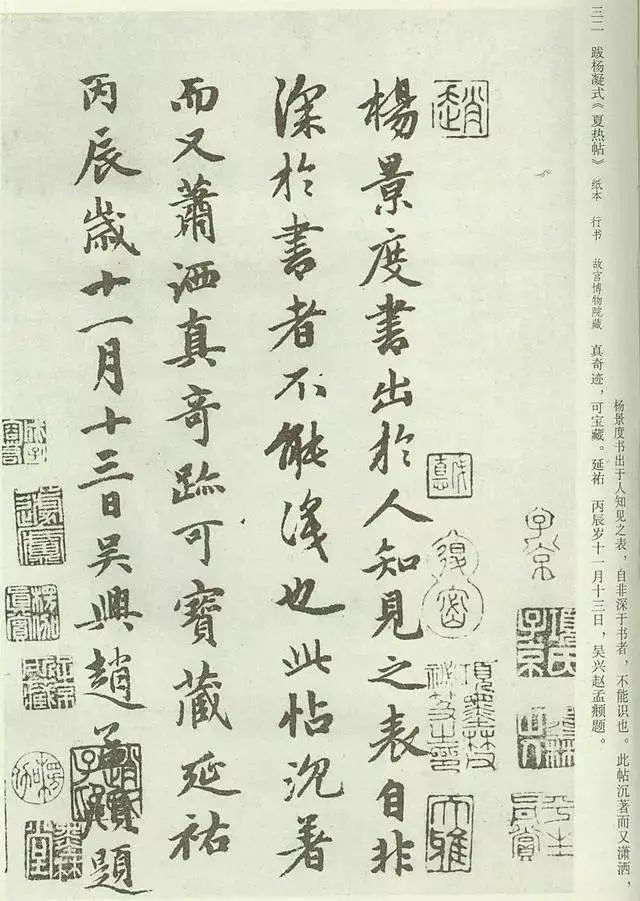 杨景度书出于人知见之表，自非深于书者，不能识也。此帖沉著而又潇洒，
三二 跋杨凝式《夏热帖》 纸本 行书 故宫博物院藏 真奇迹，可宝藏。延祐 丙辰岁十一月十三日，吴兴赵孟頫题。
子京
趙
大雅
楊景度書出於人知見之表自非
深於書者不能識也此帖沉著
而又蕭洒真奇跡可寶藏延祐
丙辰歲十一月十三日吳興趙孟頫題